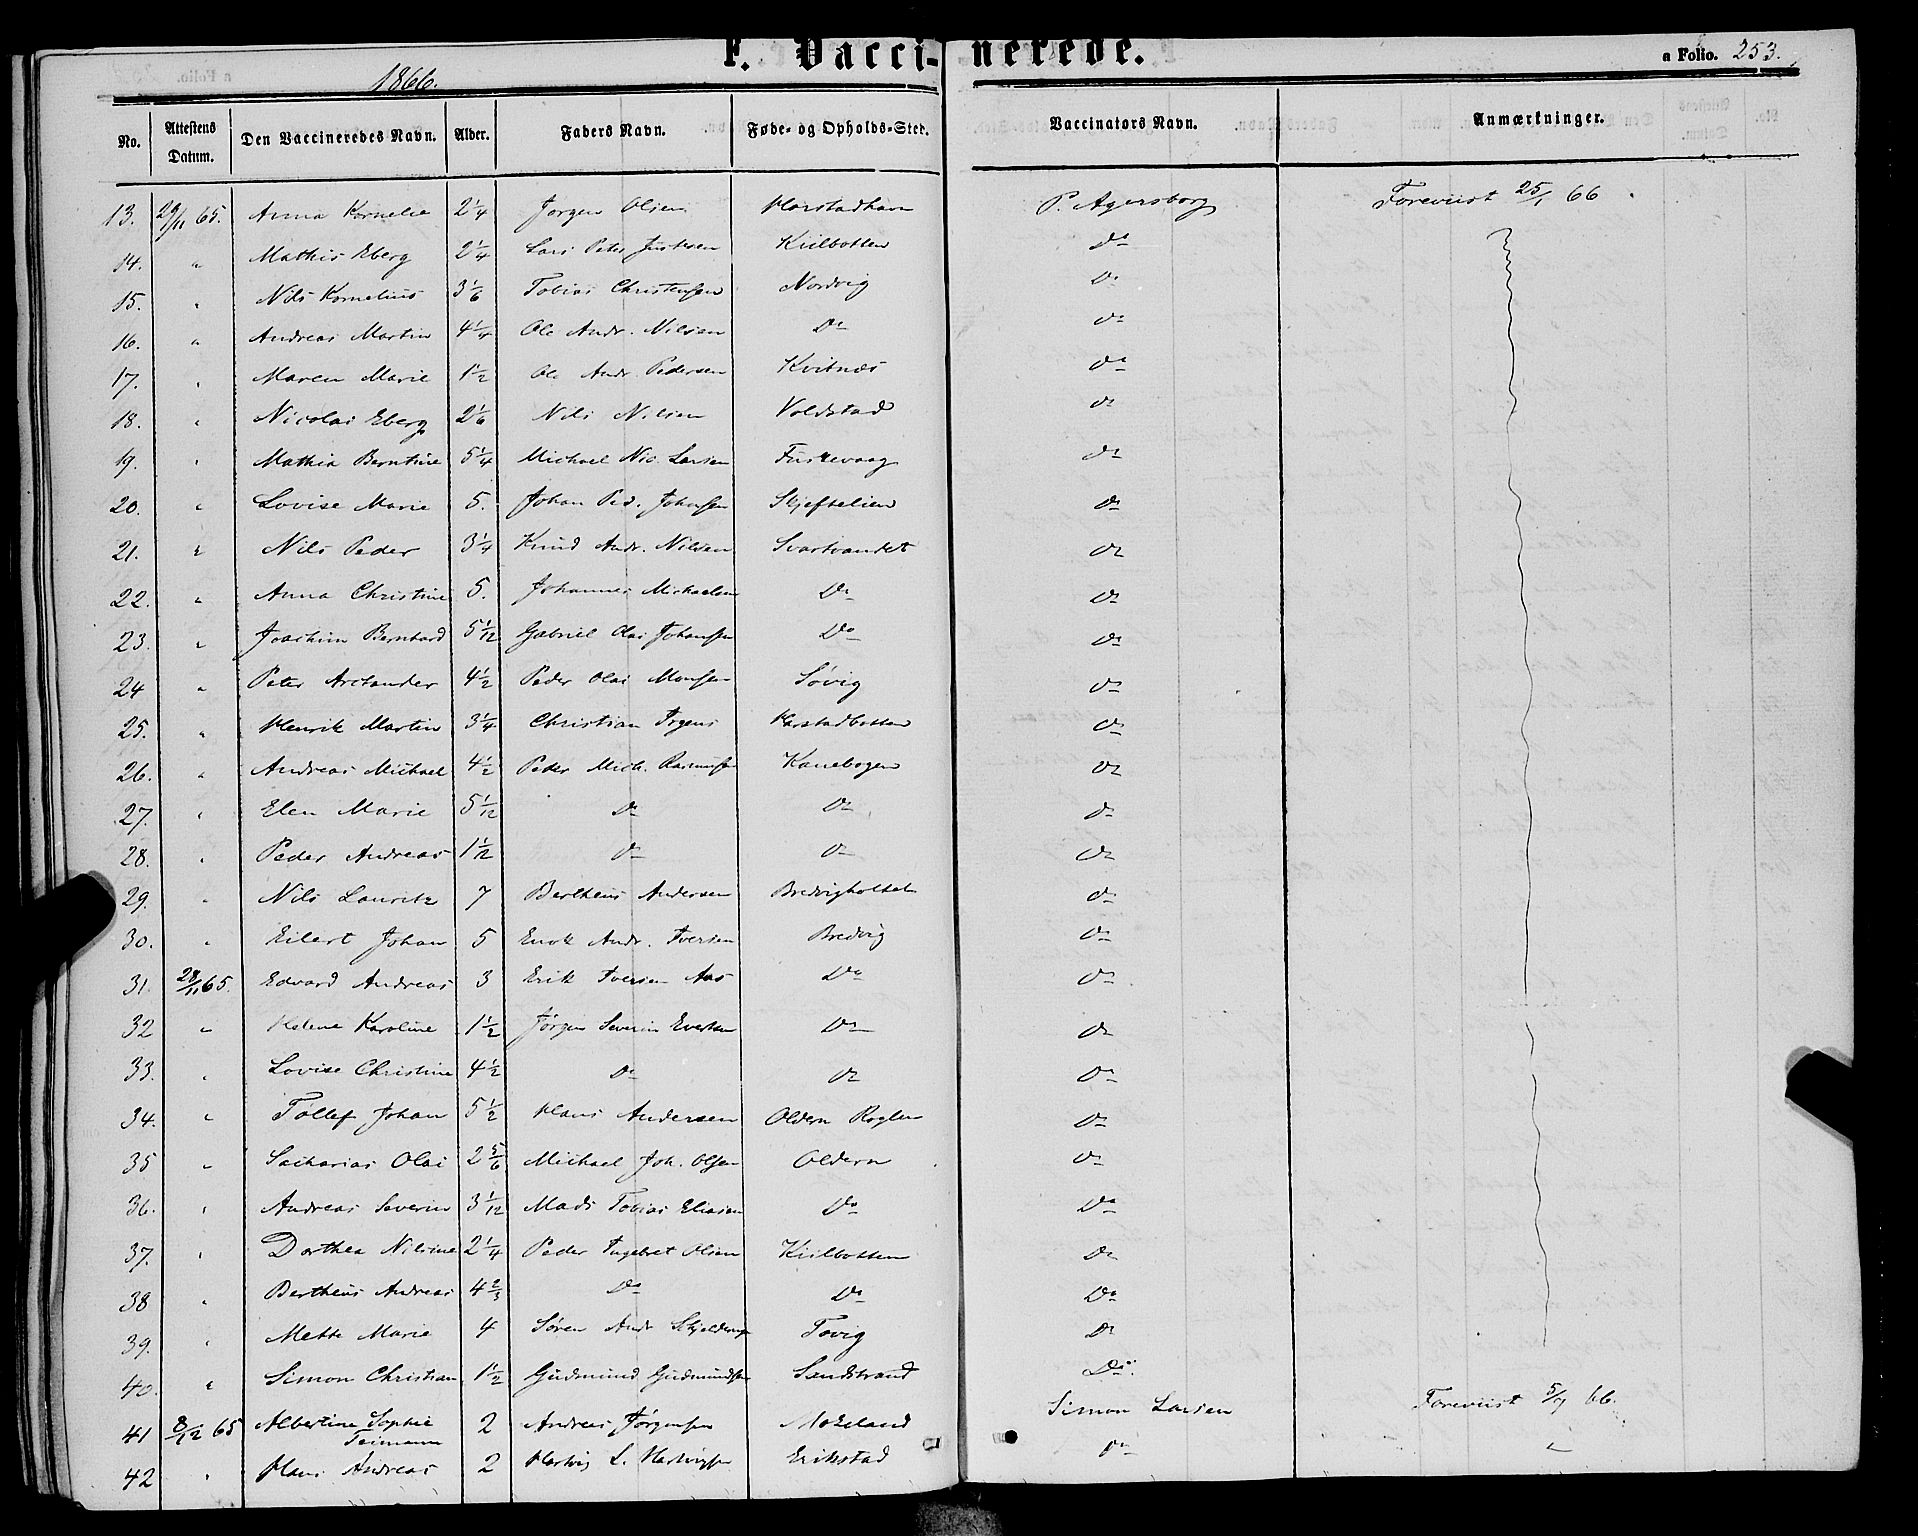 F. Vaccinerede. a Folio. 253.
1866.
No. Attestens Datum. Den Vaccineredes Navn. Alder. Faders Navn. Føde- og Opholds-Sted. Vaccinators Navn. Anmærkninger.
13. 29/11 65. Anna Kornelie 2 1/4 Jørgen Olsen Harstadhavn P. Agersborg Foreviist 25/1 66
14. " Mathis Eberg 2 1/4 Lars Peter Justesen Kiilbotten Do
15. " Nils Kornelius 3 1/6 Tobias Christensen Nordvig Do
16. " Andreas Martin 4 1/4 Ole Andr. Nilsen Do Do
17. " Maren Marie 1 1/2 Ole Andr. Pedersen Kvitnæs Do
18. " Nicolai Eberg 2 1/6 Nils Nilsen Voldstad Do
19. " Mathea Berntine 5 1/4 Michael Nic. Larsen Fuskevaag Do
20. " Lovise Marie 5. Johan Ped. Johnsen Skjeftelien Do
21. " Nils Peder 3 1/4 Knud Andr. Nilsen Svartvandet Do
22. " Anna Christine 5. Johannes Michaelsen Do Do
23. " Joachim Bernhard 5 1/12 Gabriel Olai Johansen Do Do
24 " Peter Arctander 4 1/2 Peder Olai Monsen Søvig Do
25. " Henrik Martin 3 1/4 Christian Irgens Harstadbotten Do
26. " Andreas Michael 4 1/2 Peder Mich. Rasmusen Kanebogen Do
27. " Elen Marie 5 1/12 Do Do Do
28. " Peder Andreas 1 1/12 Do Do Do
29. " Nils Lauritz 7 Bertheus Andersen Bredvigholtet Do
30. " Eilert Johan 5 Enok Andr. Iversen Bredvig Do
31. 28/11 65. Edvard Andreas 3 Erik Iversen Aas Do Do
32 " Helene Karoline 1 1/2 Jørgen Severin Evertsen Do Do
33. " Lovise Christine 4 1/2 Do Do Do
34. " Tøllef Johan 5 1/2 Hans Andersen Oldern Roglen Do
35 " Sacharias Olai 2 5/6 Michael Joh. Olsen Oldern Do
36. " Andreas Severin 3 1/12 Mads Tobias Eliasen Do Do
37. " Dorthea Nilsine 2 1/4 Peder Ingebret Olsen Kiilbotten Do
38 " Bertheus Andreas 4 2/3 Do Do Do
39. " Mette Marie 4 Søren Andr Skjelderup Tovig Do
40. " Simon Christian 1 1/2 Gudmund Gudmundsen Sandstrand Do
41 8/12 65 Albertine Sophie 2 Andreas Jørgensen Møkeland Simon Larsen Foreviist 5/7 66.
Teimann
42 " Hans Andreas 2 Hartvig L. Hartvigsen Erikstad Do "